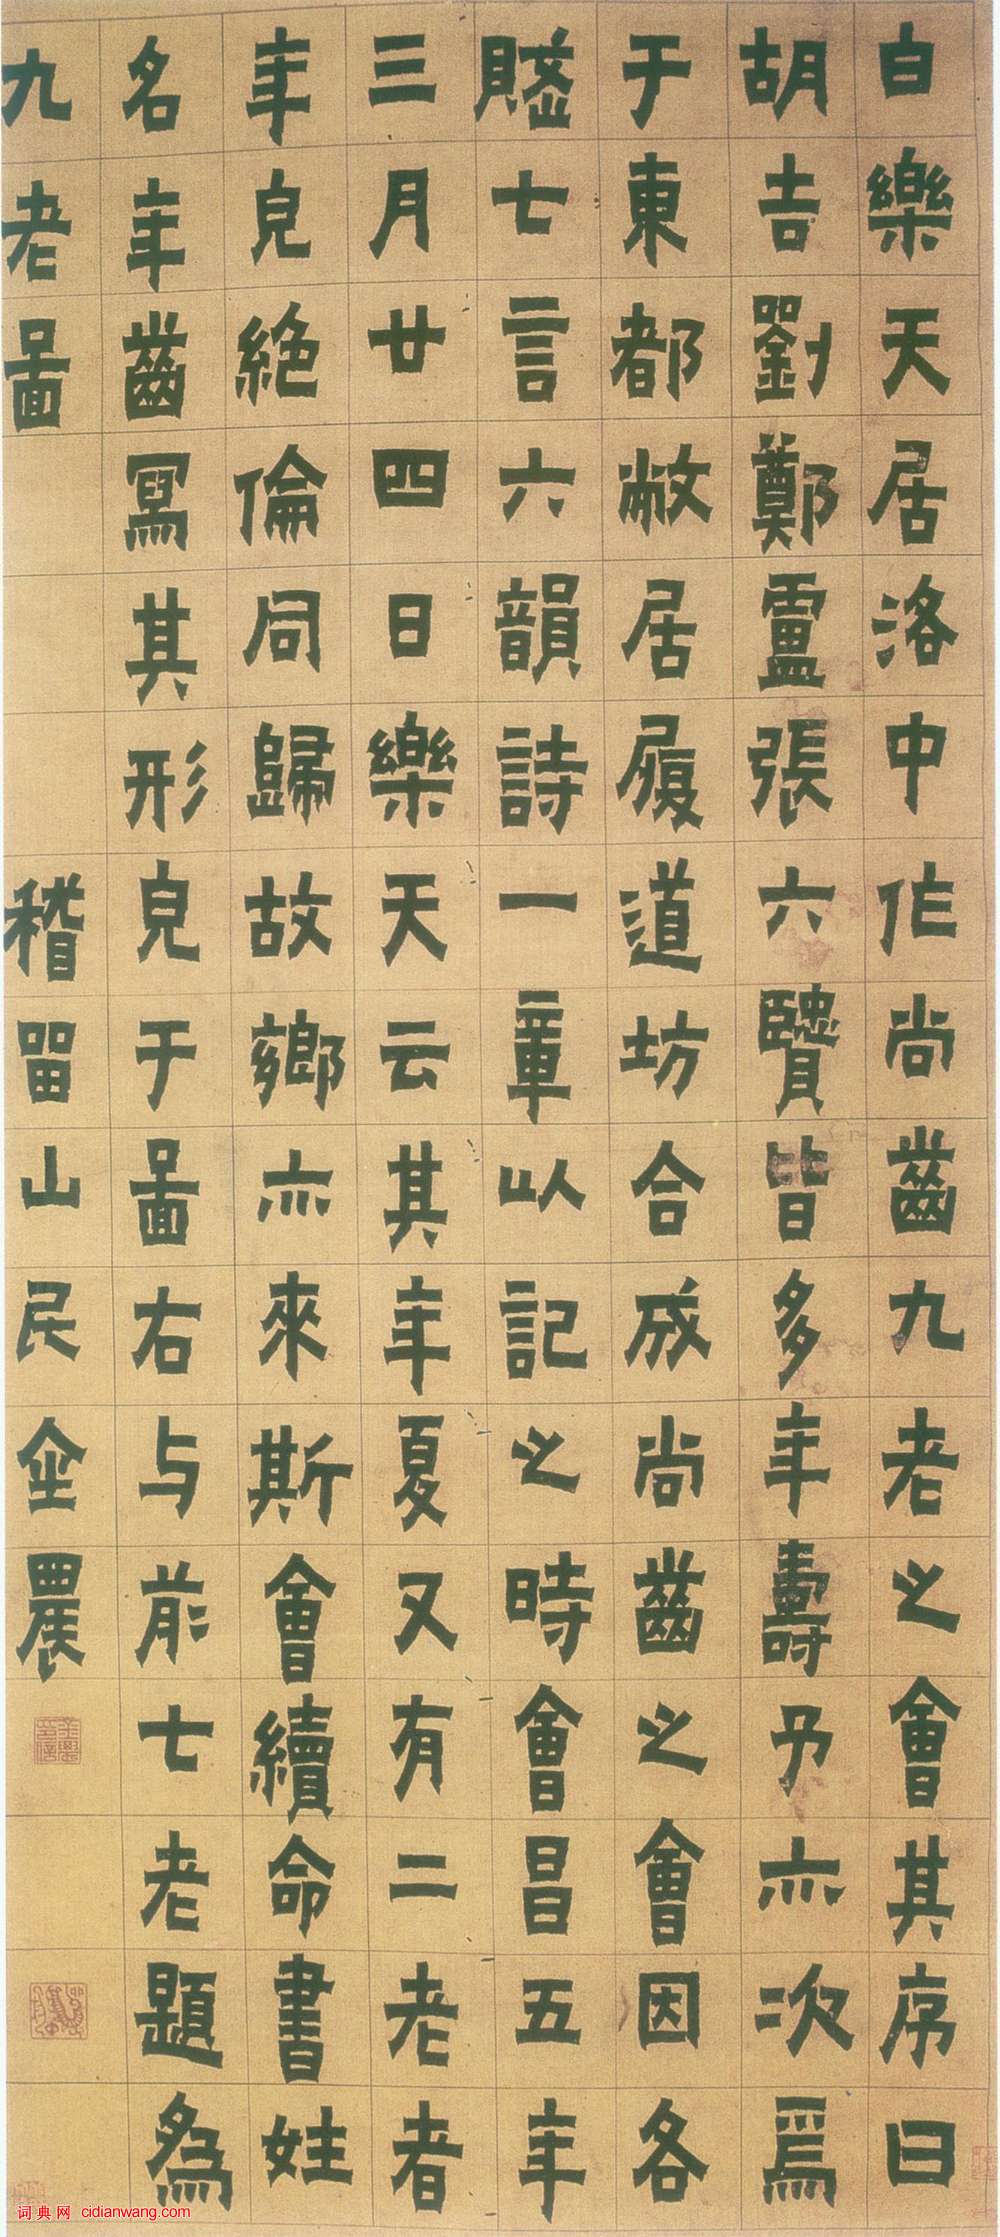 白樂天居洛中作尚齒九老之會其序曰
胡吉劉鄭盧張六贒皆多年壽予亦次焉
于東都敝居履道坊合成尚齒之會因各
賦七言六韻詩一章以記之時會昌五年
三月廿四日樂天云其年夏又有二老者
年皃絶倫同歸故鄉亦來斯會續命書姓
名年齒寫其形皃于圖右与前七老題為
九老圖 稽留山民金農
词典网 cidianwang.com